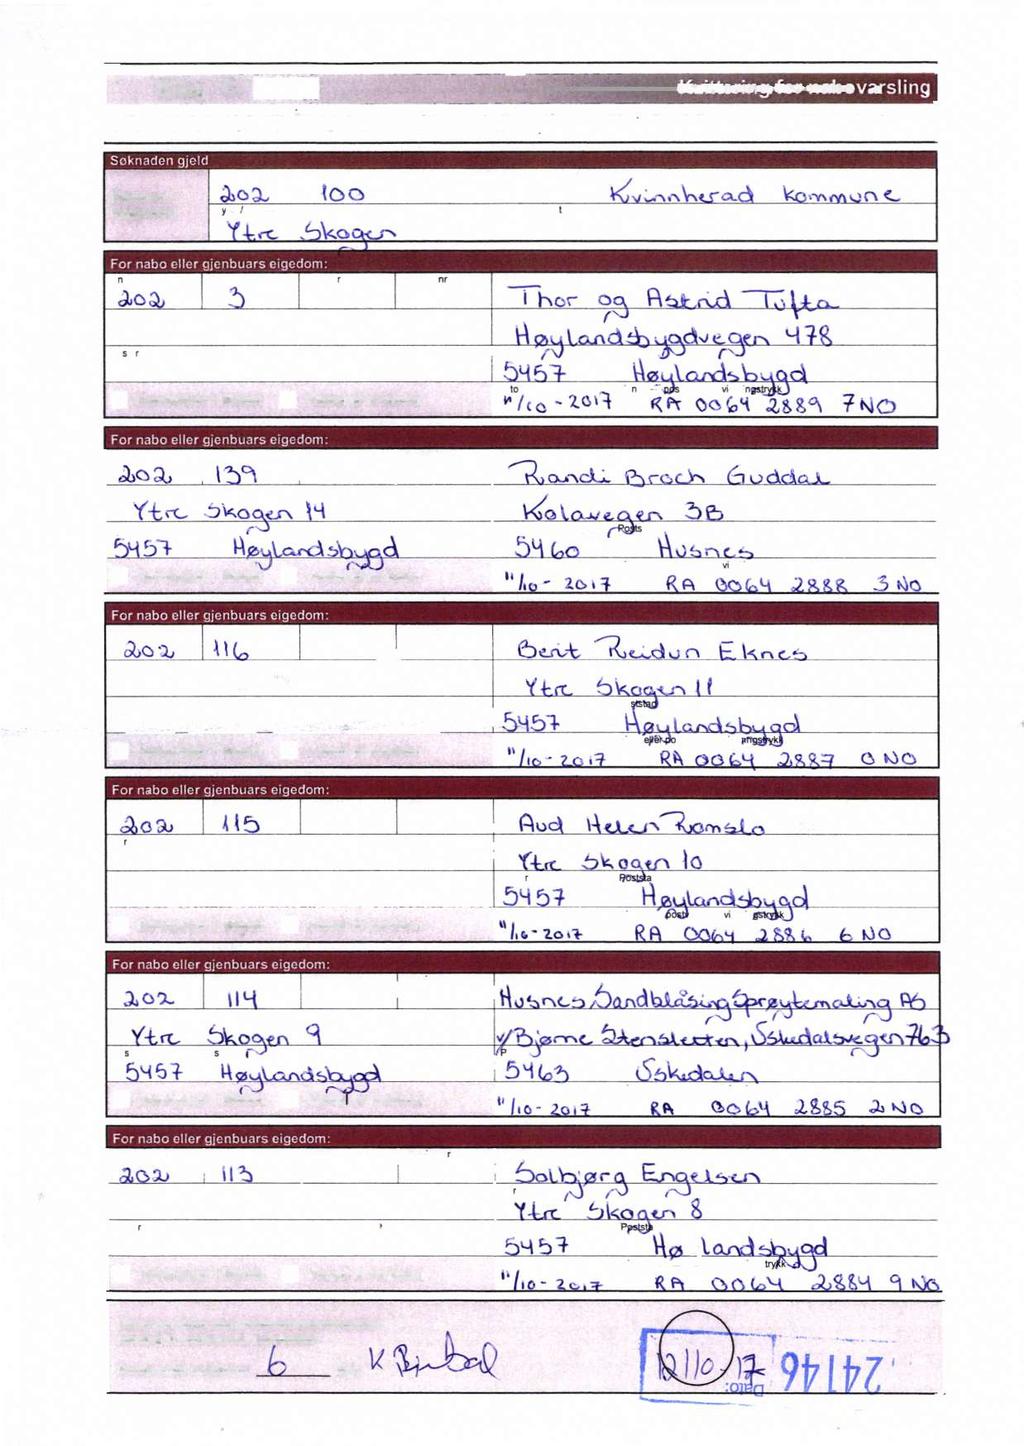 Kvittering for nabovarsling
Søknaden gjeld
202 100 Kvinnherad kommune
Ytre Skogen
For nabo eller gjenbuars eigedom:
202 3 Thor og Astrid Tufta
Høylandsbygdvegen 478
5457 Høylandsbygd
11/10 - 2017 RA 0064 2889 7 NO
For nabo eller gjenbuars eigedom:
202 139 Randi Broch Guddal
Ytre Skogen 14 Kolavegen 3B
5457 Høylandsbygd 5460 Husnes
11/10 - 2017 RA 0064 2888 3 NO
For nabo eller gjenbuars eigedom:
202 116 Berit Reidun Eknes
Ytre Skogen 11
5457 Høylandsbygd
11/10 - 2017 RA 0064 2887 0 NO
For nabo eller gjenbuars eigedom:
202 115 Aud Helen Ramslo
Ytre Skogen 10
5457 Høylandsbygd
11/10 - 2017 RA 0064 2886 6 NO
For nabo eller gjenbuars eigedom:
202 114 Husnes Sandblåsing Sprøytemaling AS
Ytre Skogen 9 v/Bjørne Stensletten, Uskedalsvegen 763
5457 Høylandsbygd 5463 Uskedalen
11/10 - 2017 RA 0064 2885 2 NO
For nabo eller gjenbuars eigedom:
202 113 Solbjørg Engelsen
Ytre Skogen 8
5457 Hø landsbygd
11/10 - 2017 RA 0064 2884 9 NO
6 12/10-17 24146
Dato: